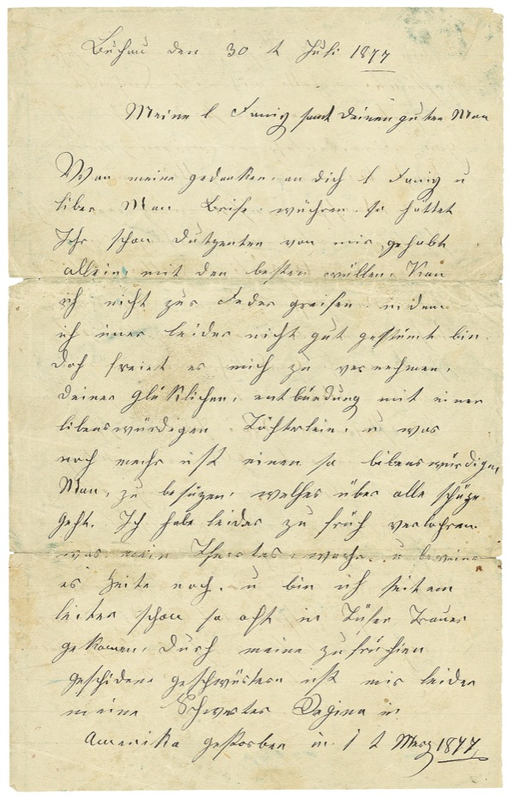 Buchau den 30 t Juli 1877
Meine l Fanig samt deinen guten Man
Wan meine gedanken an dich l Fanig u
liber Man Brife währen so hättet
Ihr schon Dutzenten von mir gehabt
allein mit den besten willen kan
ich nicht zur Feder greifen indem
ich imer leider nicht gut gestimt bin.
Doch freiet es mich zu vernehmen,
deiner Glüklichen, entbündung mit einen
libenswürdigen Töchterlein, u was
noch mehr ist einen so libenswürdigen
Man, zu besüzen, welches über alle schäze
geht. Ich habe leider zu früh verlohren
was mein Theerstes wahr, u beweine
es heite noch, u bin ich seitem
leider schon so oft in Tüfer Trauer
gekomen, durch meine zufrühen
geschidene geschwüstern ist mir leider
meine Schwester Regina in
Amerika gestorben in 1 t Merz 1877